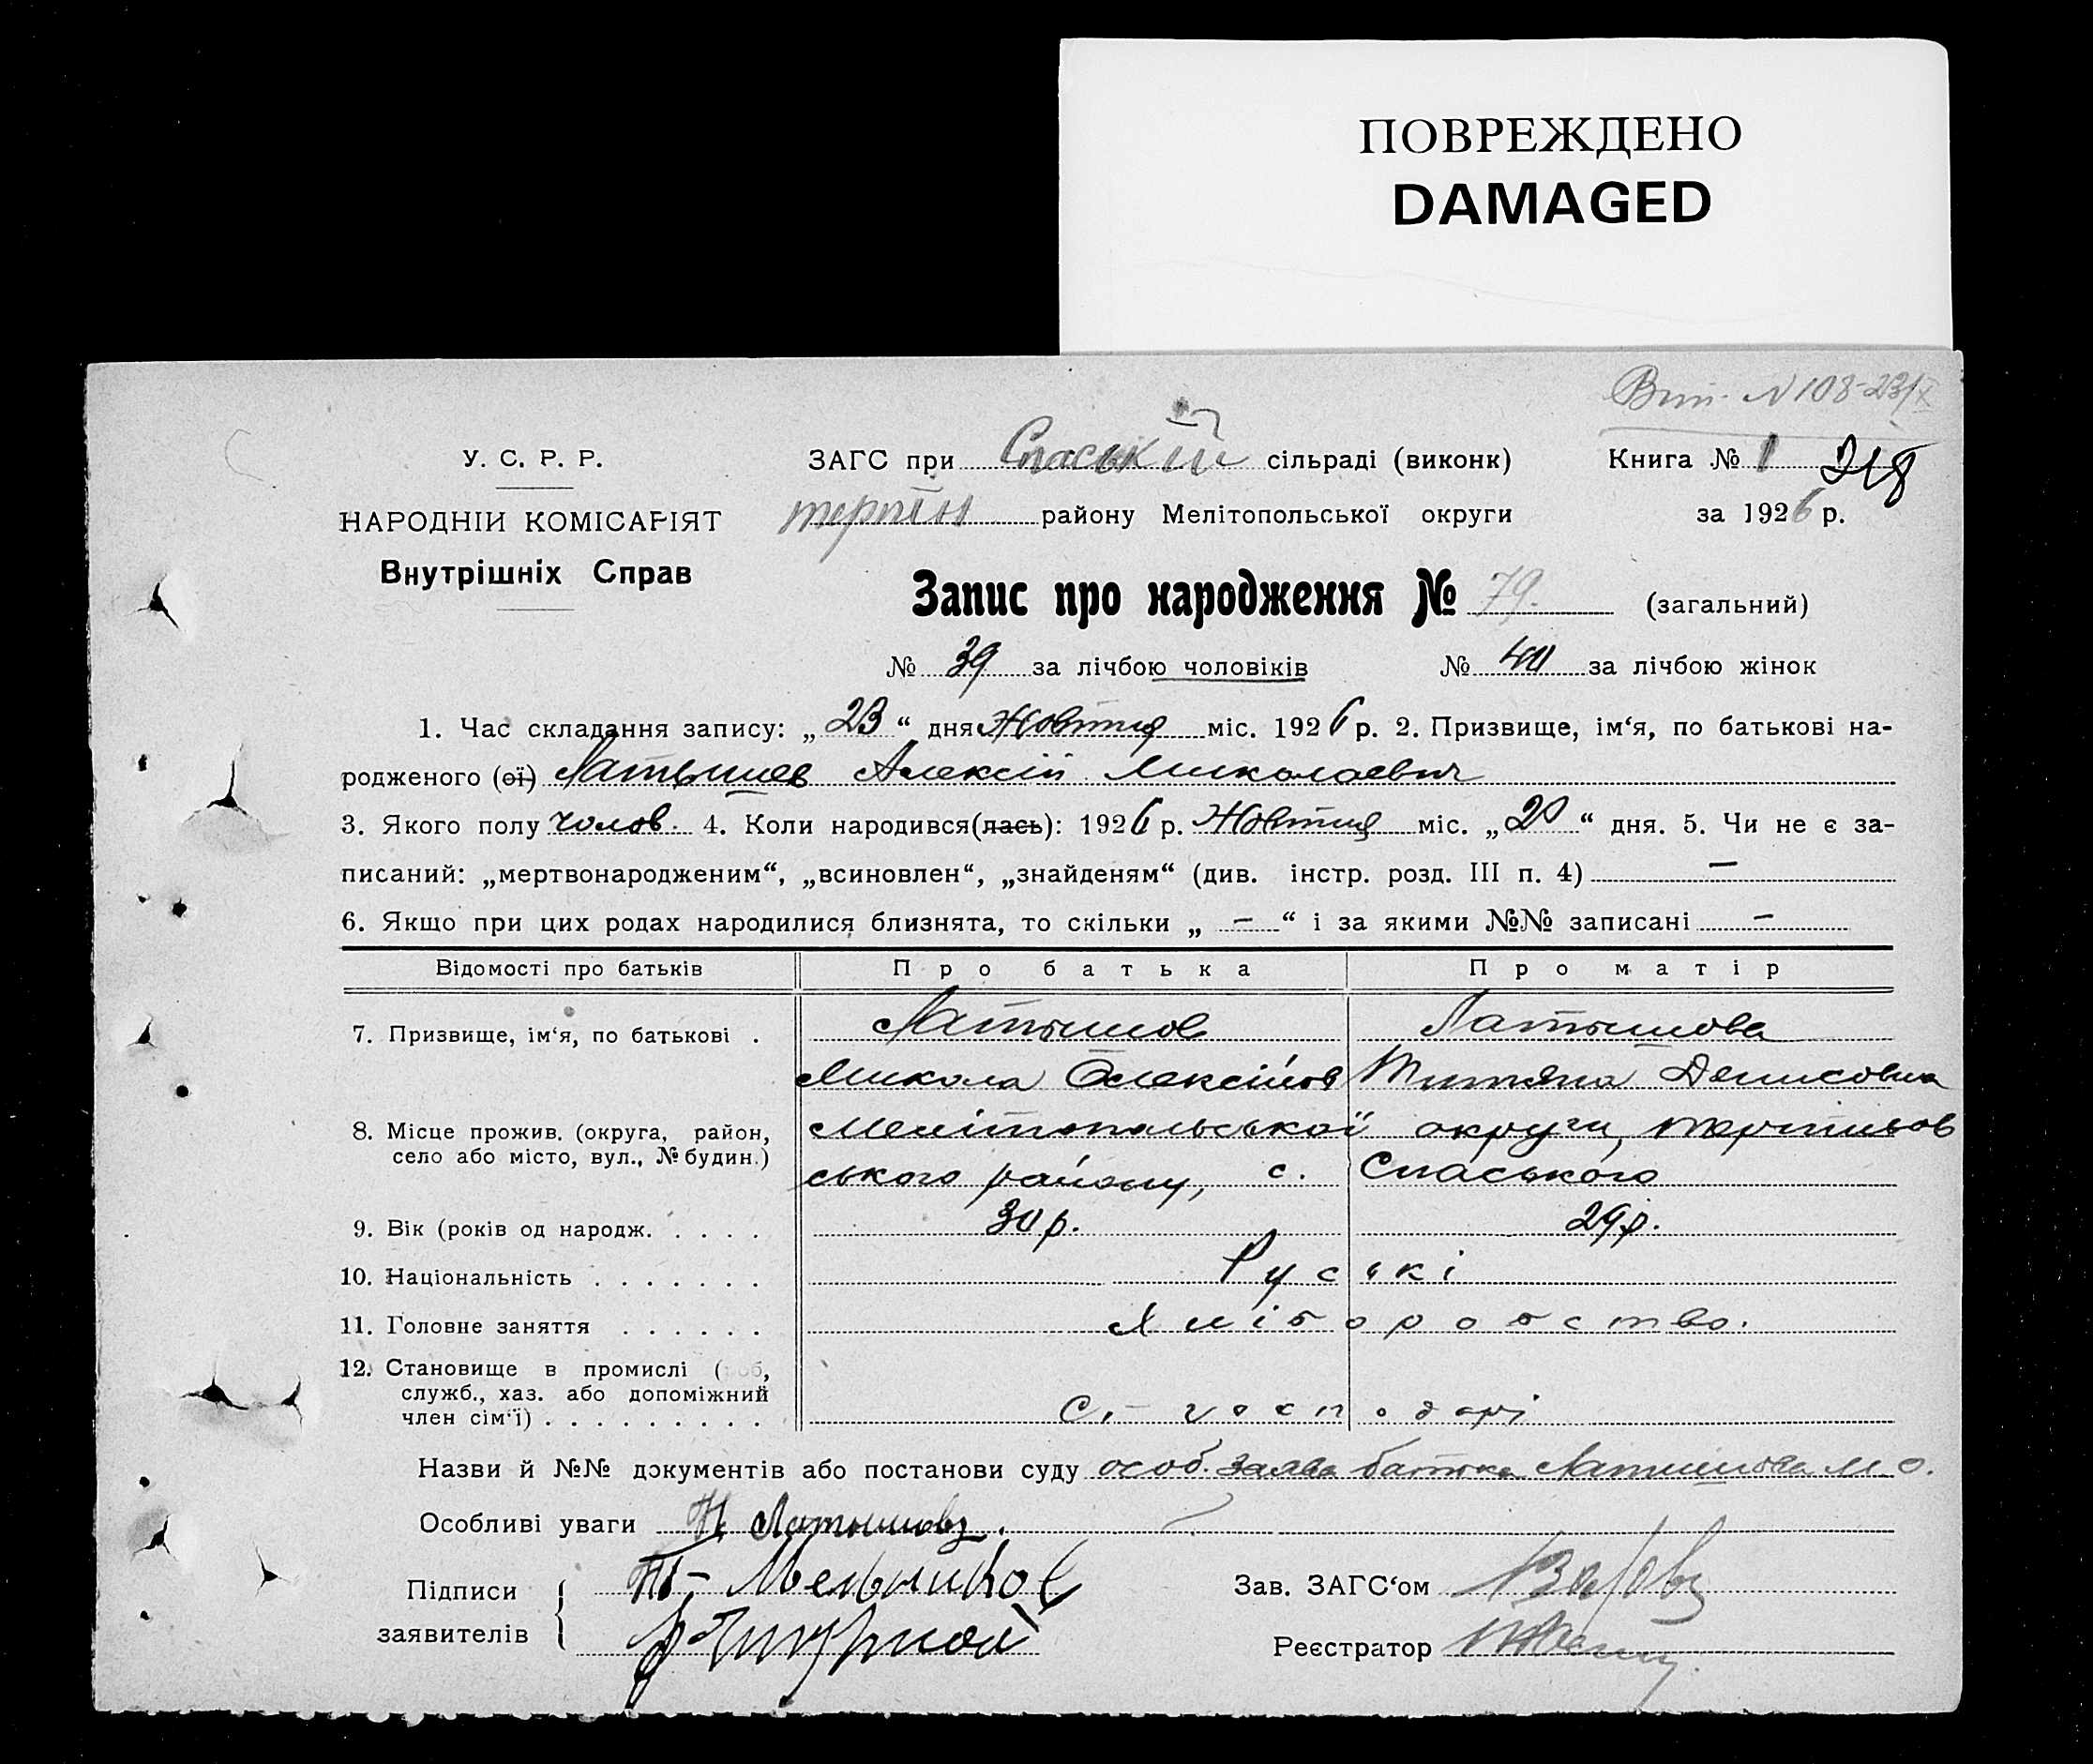 ПОВРЕЖДЕНО
DAMAGED
N 108-23/X
У. С. Р. Р.
ЗАГС при Спаській сільраді (виконк)
Книга № 1 218
НАРОДНІЙ КОМІСАРІЯТ
терпін району Мелітопольської округи
за 1926 р.
Внутрішніх Справ
Запис про народження № 79. (загальний)
№ 39 за лічбою чоловіків № 40 за лічбою жінок
1. Час складання запису: „ 23 “ дня Жовтня міс. 1926 р. 2. Призвище, ім‘я, по батькові на-
родженого (ої) Латышев Алексій Миколаевич
3. Якого полу чолов. 4. Коли народився(лась): 1926 р. Жовтня міс. „ 20 “ дня. 5. Чи не є за-
писаний: „мертвонародженим“, „всиновлен“, „знайденям“ (див. інстр. розд. III п. 4) —
6. Якщо при цих родах народилися близнята, то скільки „ — “ і за якими №№ записані —
Відомості про батьків Про батька Про матір
7. Призвище, ім‘я, по батькові . Латышов Латышова
Микола Олексійов Титяна Денисовна
8. Місце прожив. (округа, район, Мелітопольської округи, терпиньов
село або місто, вул., № будин.) ського району, с. Спаського
9. Вік (років од народж. . . . . 30 р. 29 р.
10. Національність . . . . . . . Руські
11. Головне заняття . . . . . . Хліборобство.
12. Становище в промислі ( об,
служб., хаз. або допоміжний
член сім‘ї) . . . . . . . . . С.-господарі
Назви й №№ документів або постанови суду особ. заява батька Латишова М. О.
Особливі уваги Н. Латышовъ.
Підписи Мельников Зав. ЗАГС‘ом
заявителів Реєстратор